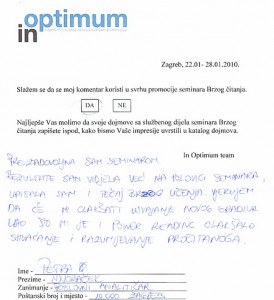 in optimum
Zagreb, 22.01- 28.01.2010.
Slažem se da se moj komentar koristi u svrhu promocije seminara Brzog čitanja.
DA NE
Najljepše Vas molimo da svoje dojmove sa službenog dijela seminara Brzog
čitanja zapišete ispod, kako bismo Vaše impresije uvrstili u katalog dojmova.
In Optimum team
PREZADOVOLJNA SAM SEMINAROM.
REZULTATE SAM VIDJELA VEĆ NA POLOVICI SEMINARA,
UPISALA SAM I TEČAJ BRZOG UČENJA. VJERUJEM
DA ĆE MI OLAKŠATI USVAJANJE NOVOG GRADIVA
KAO ŠTO MI JE I POWER READING OLAKŠAO
SHVAĆANJE I RAZUMIJEVANJE PROČITANOGA.
Ime - PETRA
Prezime -
Zanimanje - POSLOVNI ANALITIČAR
Poštanski broj i mjesto - 10 000 ZAGREB